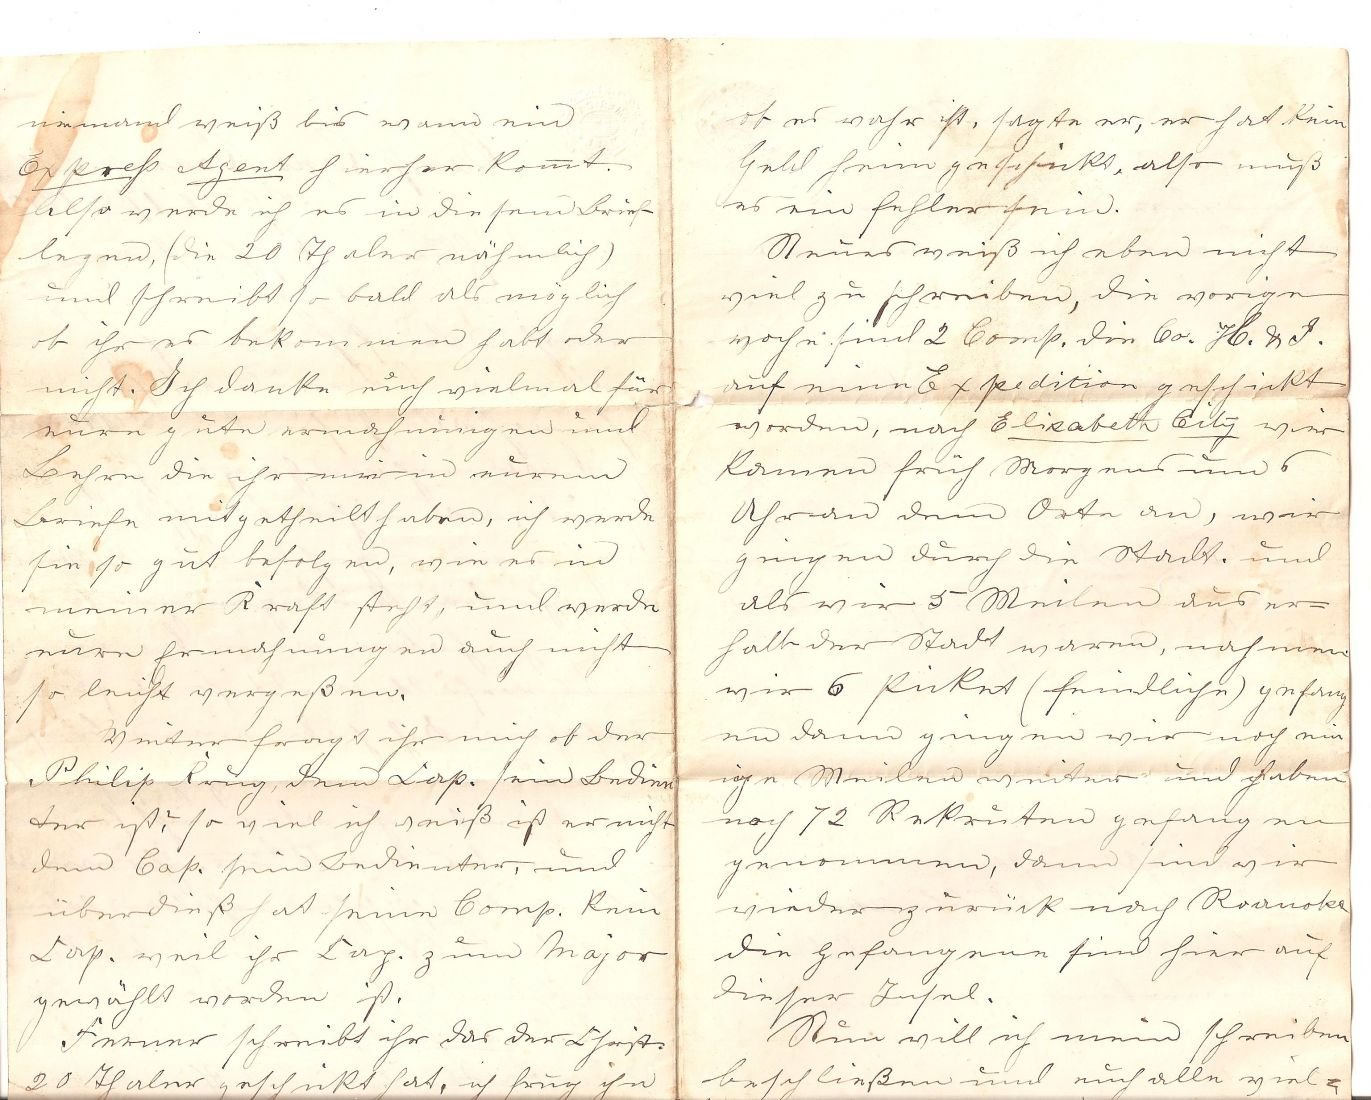 niemand weiß bis wann ein
Expreß Agent hierher kom̄t.
also werde ich es in diesem Brief
legen, (die 20 Thaler nähmlich)
und schreibt so bald als möglich
ob ihr es bekommen habt oder
nicht. Ich danke euch vielmal für
eure gute ermahnungen und
Lehre die ihr mir in eurem
Briefe mitgetheilt haben, ich werde
sie so gut befolgen, wie es in
meiner Kraft steht, und werde
eure Ermahnungen auch nicht
so leicht vergeßen.
Weiter fragt ihr mich ob der
Philip Krug, dem Cap. sein Bedien
ter ist? so viel ich weiß ist er nicht
dem Cap. sein Bedienter, und
überdieß hat seine Comp. kein
Cap. weil ihr Cap. zum Major
gewählt worden ist.
Ferner schreibt ihr das der Christ.
20 Thaler geschickt hat, ich frug ihn
ob es wahr ist, sagte er, er hat kein
Geld heim geschickt, also muß
es ein fehler sein.
Neues weiß ich eben nicht
viel zu schreiben, die vorige
woche sind 2 Comp. die Co. H. & I.
auf eine Expedition geschickt
worden, nach Elizabeth City wir
kamen früh Morgens um 6
Uhr an dem Orte an, wir
gingen durch die Stadt. und
als wir 5 Meilen auser=
halb der Stadt waren, nahmen
wir 6 Picket (feindliche) gefang
en dann gingen wir noch ein
ige Meilen weiter und haben
noch 72 Rekruten gefangen
genommen, dann sind wir
wieder zurück nach Roanoke
die gefangene sind hier auf
dieser Insel.
Nun will ich mein schreiben
beschließen und euch alle viel=